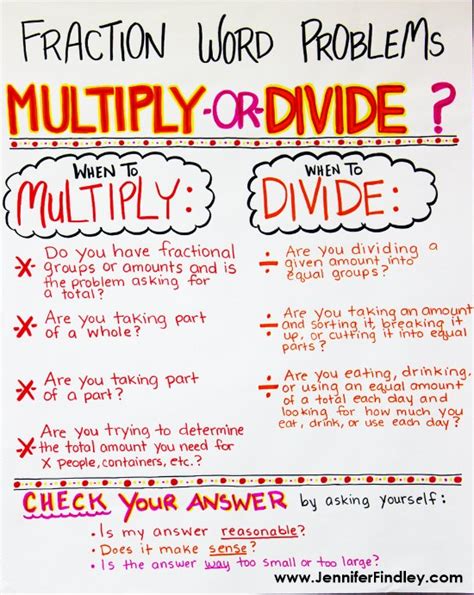 FRACTION WORD PROBLEMS
MULTIPLY-OR-DIVIDE?
WHEN TO
MULTIPLY:
× Do you have fractional
groups or amounts and is
the problem asking for
a total?
× Are you taking part
of a whole?
× Are you taking part
of a part?
× Are you trying to determine
the total amount you need for
X people, containers, etc.?
WHEN TO
DIVIDE:
÷ Are you dividing a
given amount into
equal groups?
÷ Are you taking an amount
and sorting it, breaking it
up, or cutting it into equal
parts?
÷ Are you eating, drinking,
or using an equal amount
of a total each day and
looking for how much you
eat, drink, or use each day?
CHECK YOUR ANSWER by asking yourself:
• Is my answer reasonable?
• Does it make sense?
• Is the answer way too small or too large?
www.JenniferFindley.com